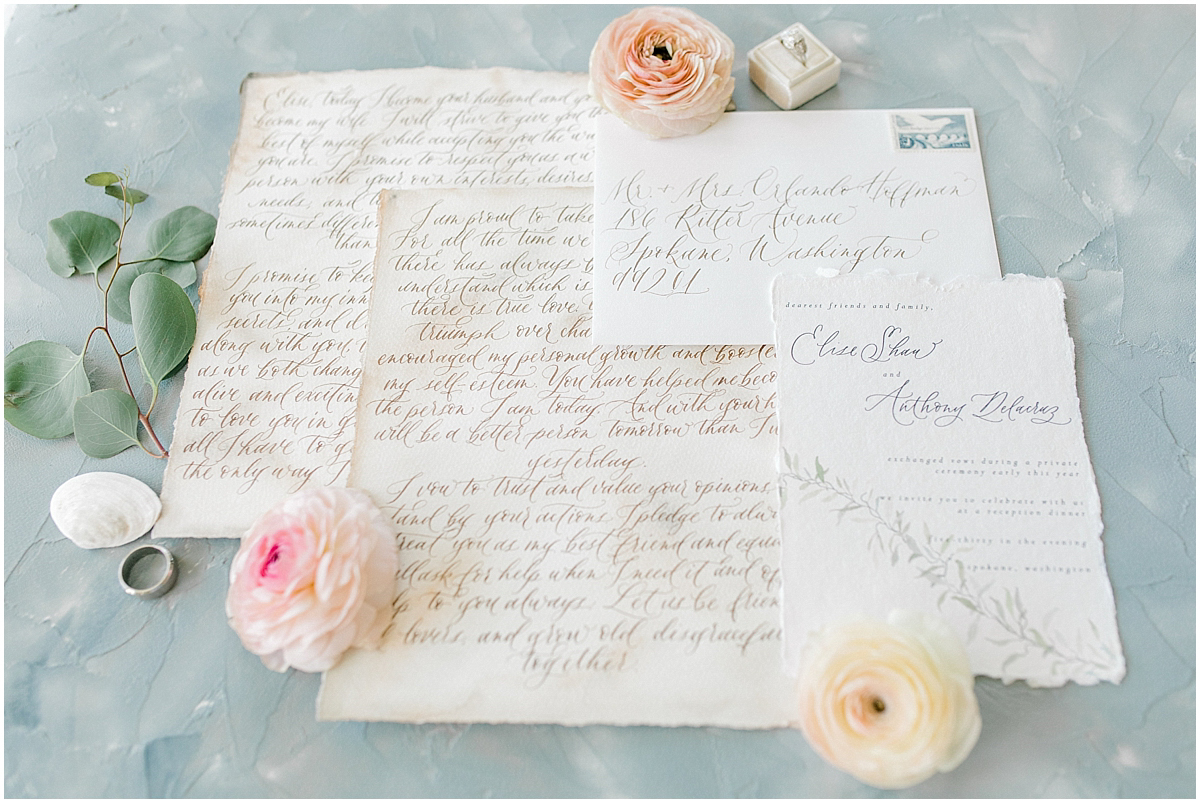 Elise, today I become your husband and you
become my wife. I will strive to give you th
best of myself while accepting you the wa
you are. I promise to respect you as a w
person with your own interests, desires
needs, and
sometimes differen
than
I promise to kee
you into my inn
secrets, and d
along with you.
as we both chang
alive and excitin
to love you in g
all I have to g
the only way I
I am proud to take
For all the time we
there has always b
understand which is
there is true love.
triumph over cha
encouraged my personal growth and booste
my self-esteem. You have helped me beco
the person I am today. And with your h
will be a better person tomorrow than I w
yesterday.
I vow to trust and value your opinions,
tand by your actions. I pledge to alw
treat you as my best friend and equa
ll ask for help when I need it and of
lp to you always. Let us be frien
d lovers, and grow old disgraceful
together.
Mr. + Mrs Orlando Hoffman
186 Ritter Avenue
Spokane, Washington
99201
dearest friends and family,
Elise Shaw
and
Anthony Delacruz
exchanged vows during a private
ceremony early this year
we invite you to celebrate with us
at a reception dinner
five thirty in the evening
spokane, washington